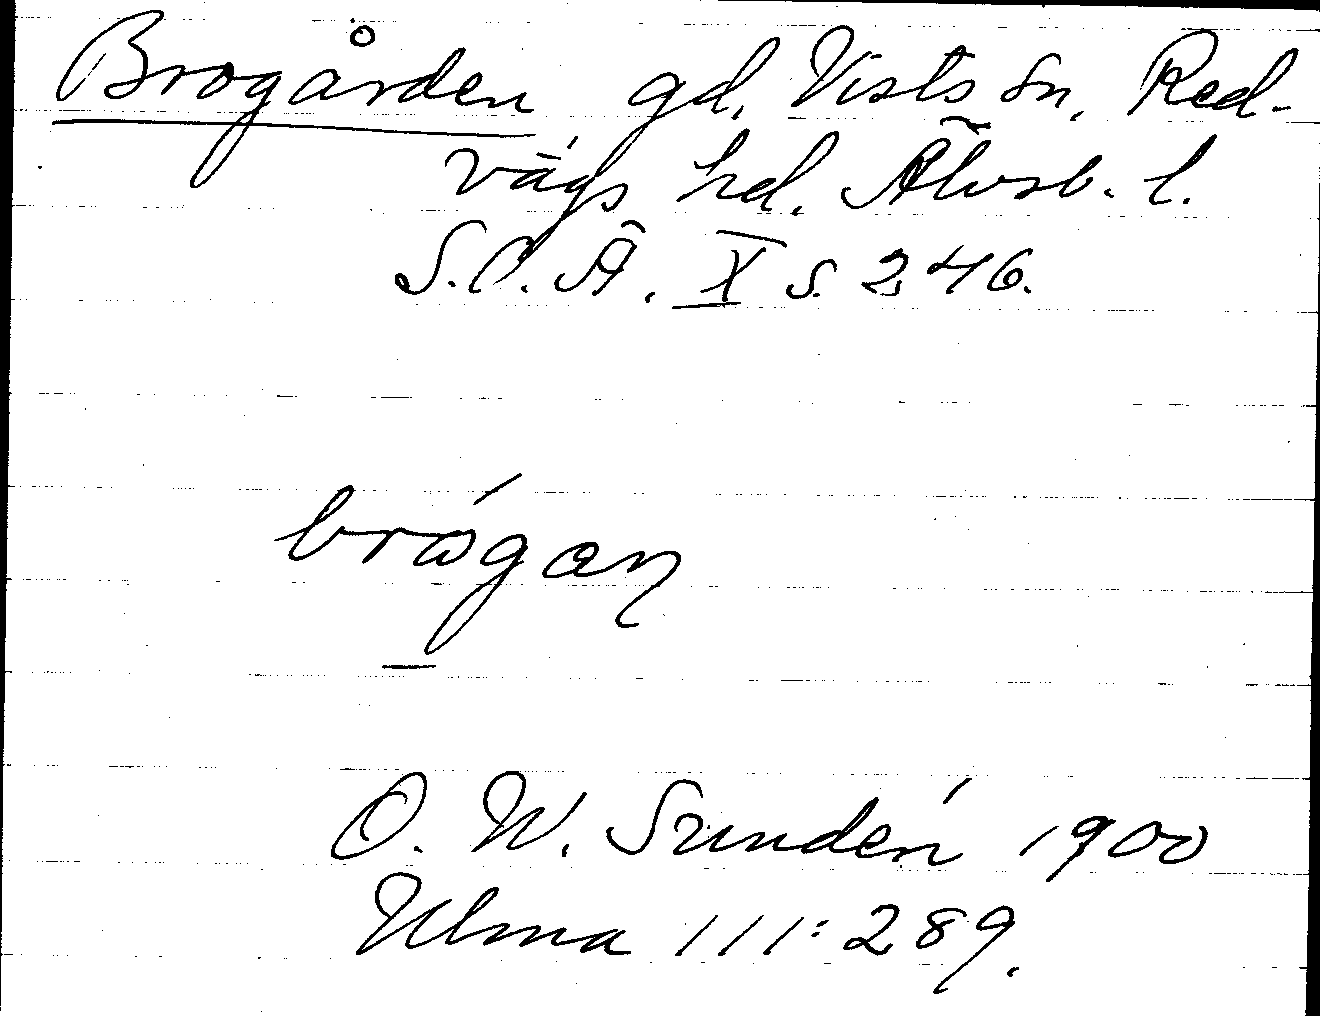 Brogården gd. Vists sn. Red-
vägs hd. Älvsb. l.
S.O.Ä. X s. 246.
brógan
O. W. Sundén 1900
Ulma 111:289.